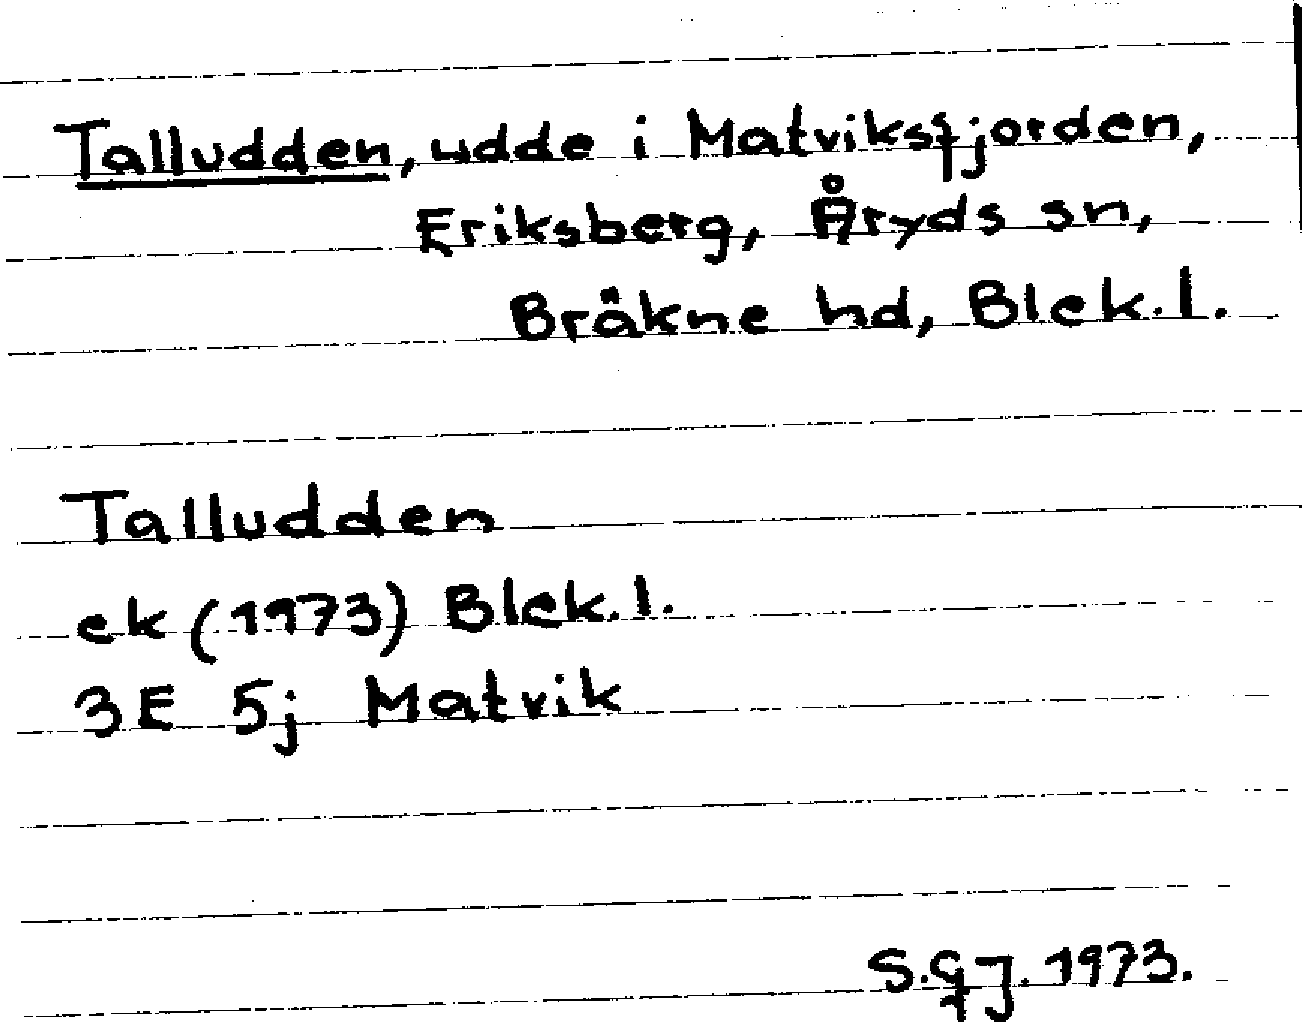 Talludden, udde i Matviksfjorden,
Eriksberg, Åryds sn,
Bräkne hd, Blek.l.
Talludden
ek (1973) Blek.l.
3E 5j Matvik
S.gJ. 1973.